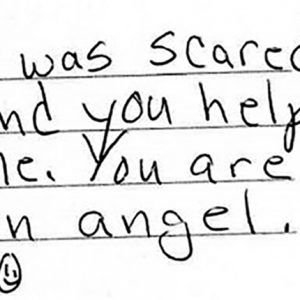 was scared
nd you help
e. You are
n angel.